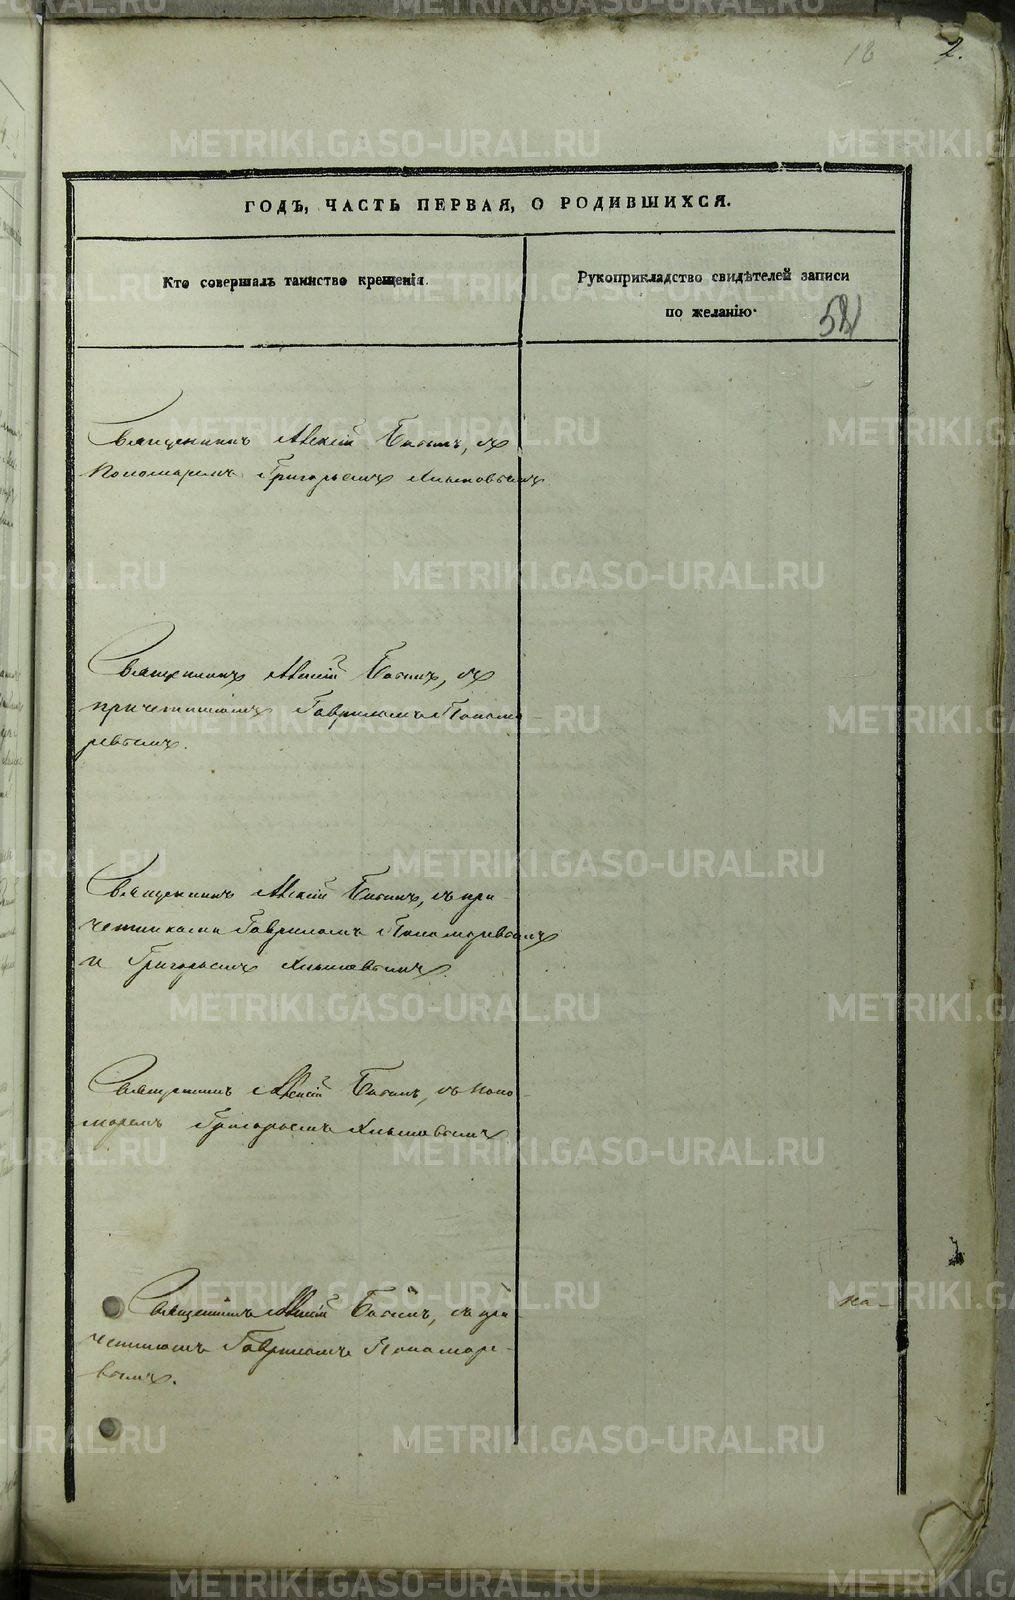 18 2.
ГОДЪ, ЧАСТЬ ПЕРВАЯ, О РОДИВШИХСЯ.
Кто совершалъ таинство крещенія.
Рукоприкладство свидѣтелей записи
по желанію.
Священникъ Алексій съ
Пономаремъ Григорьемъ Хлыновымъ
Священникъ Алексій съ
причетникомъ Гавриломъ Понома-
ревымъ.
Священникъ Алексій съ при-
четниками Гавриломъ Пономаревымъ
и Григорьемъ Хлыновымъ.
Священникъ Алексій съ Поно-
маремъ Григорьемъ Хлыновымъ
Священникъ Алексій съ при-
четникомъ Гавриломъ Пономаре-
вымъ.
METRIKI.GASO-URAL.RU